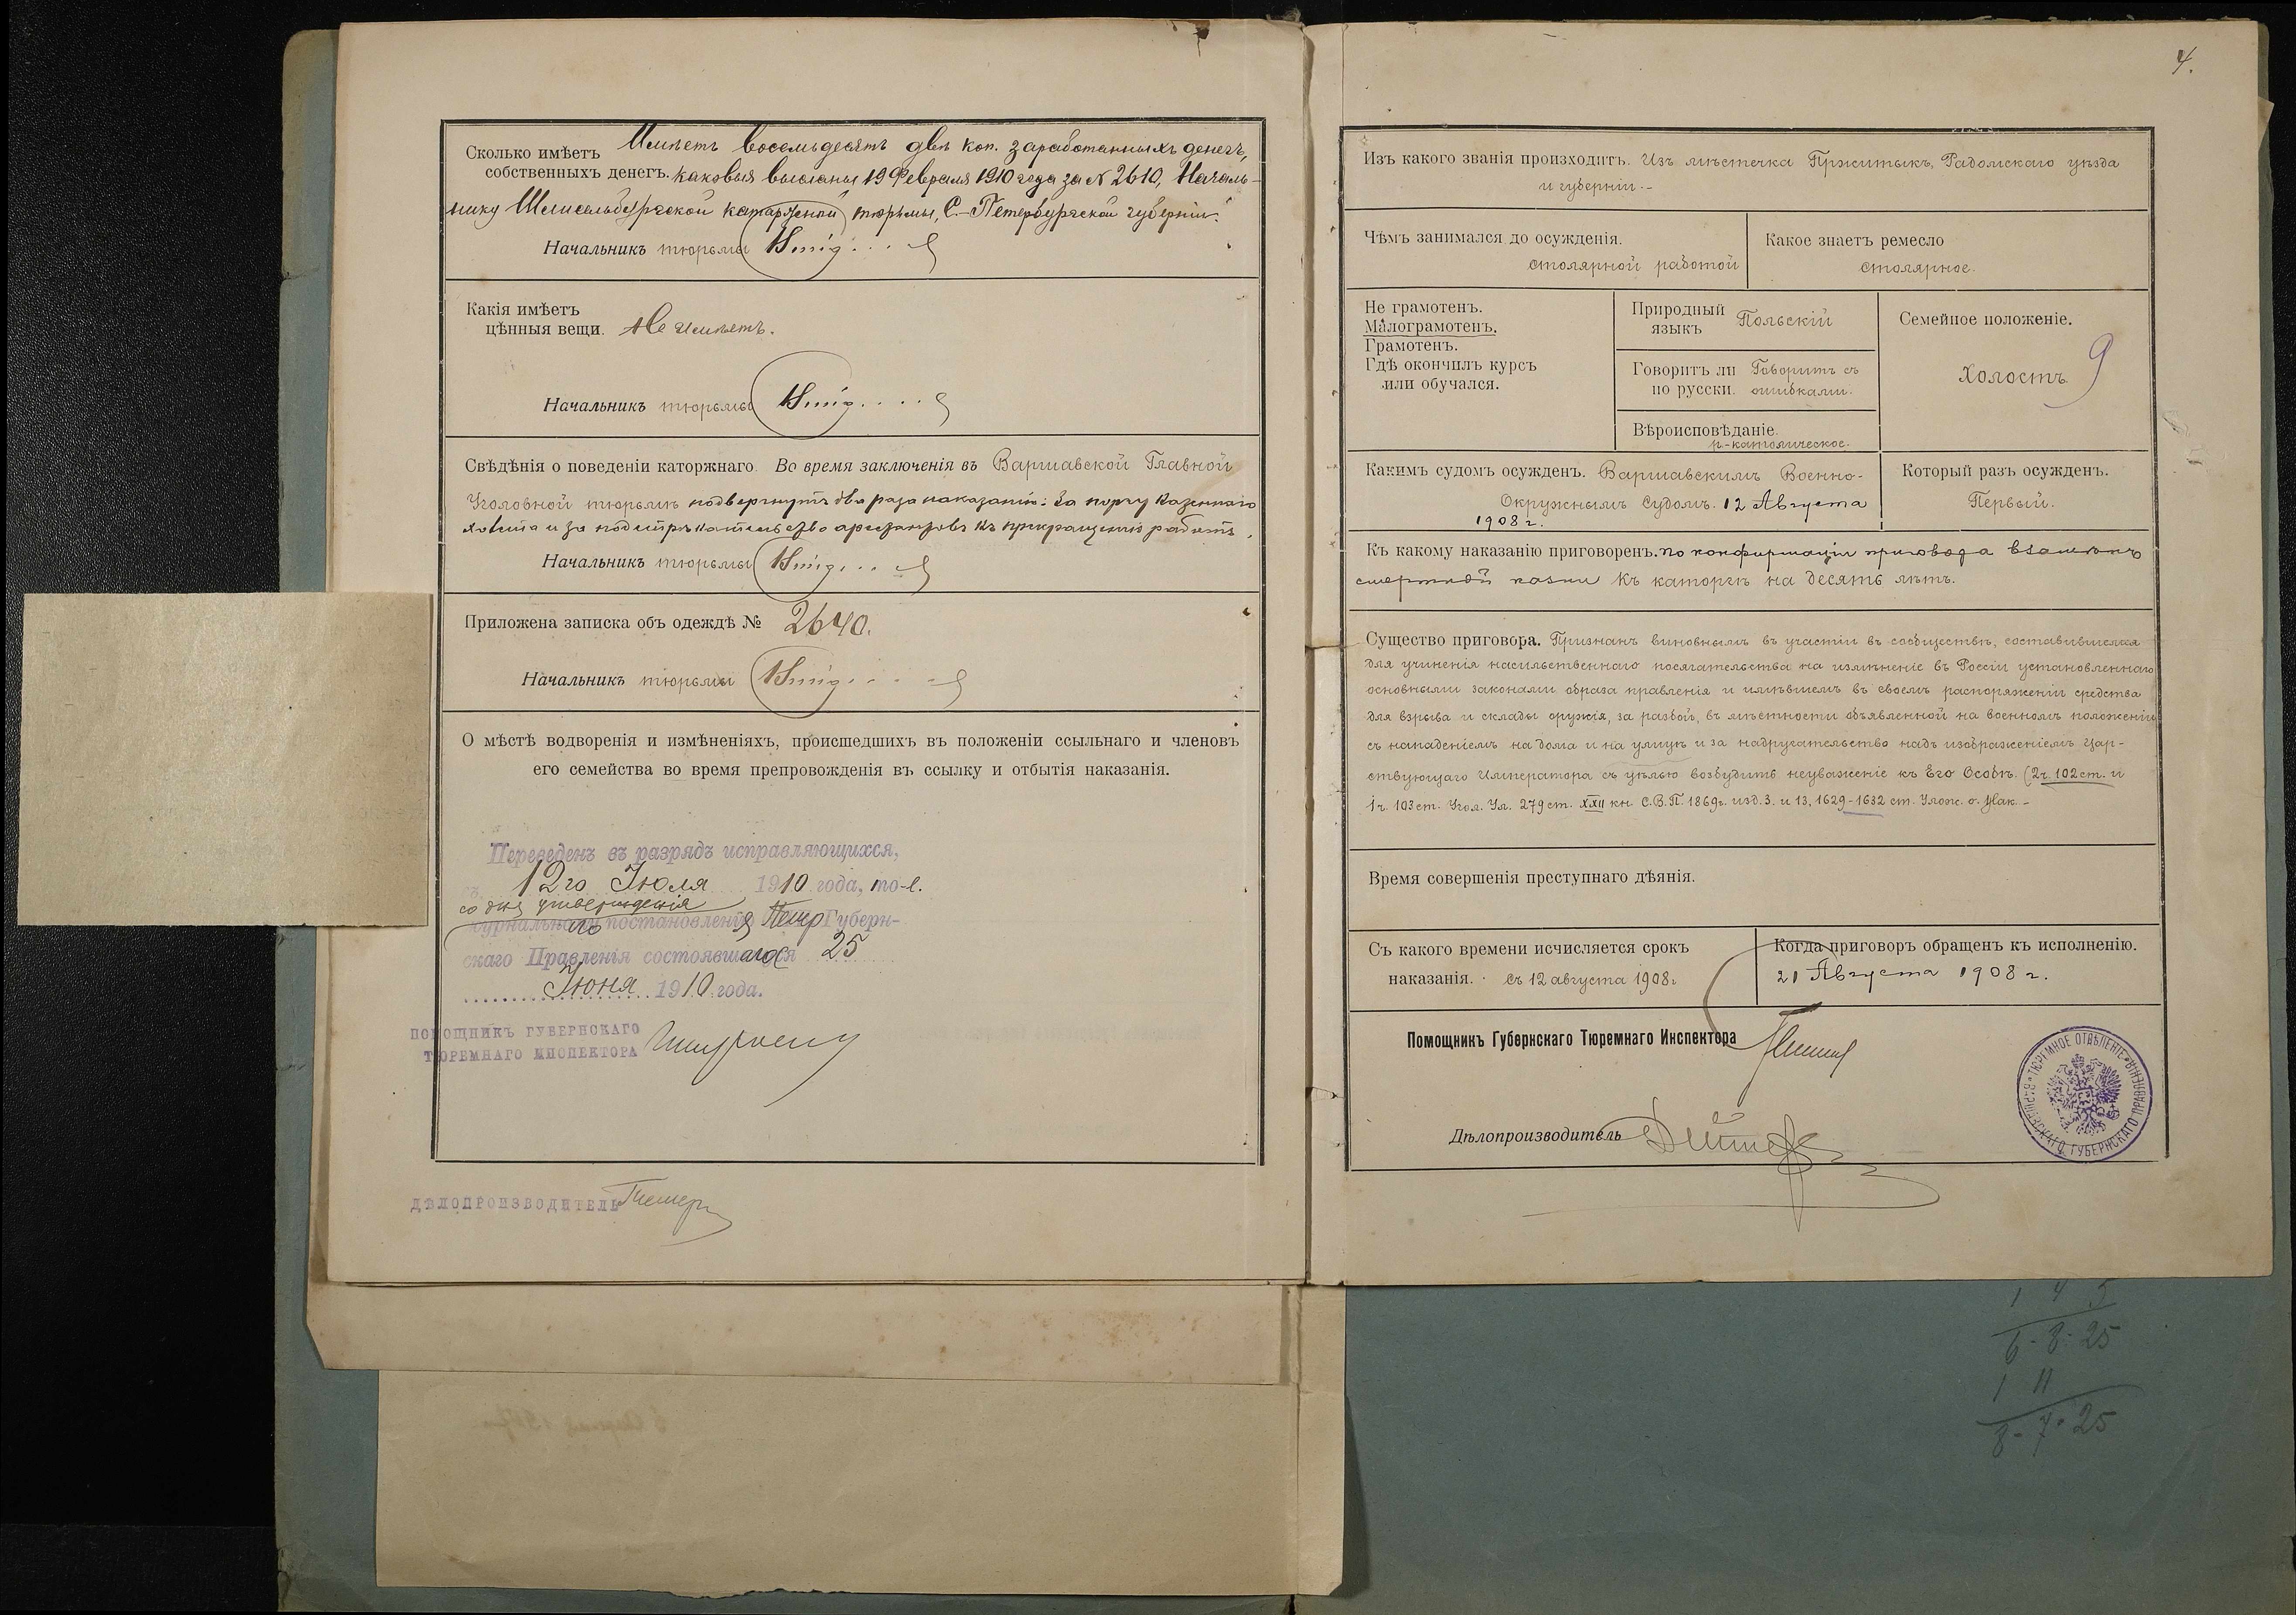 Сколько имѣетъ Имѣетъ восемьдесятъ двѣ коп. заработанныхъ денегъ,
собственныхъ денегъ. каковыя высланы 19 Февраля 1910 года за № 2610, Началь-
нику Шлиссельбургской каторжной тюрьмы, С.-Петербургской губерніи.
Начальникъ тюрьмы
Какія имѣетъ
цѣнныя вещи. Не имѣетъ.
Начальникъ тюрьмы
Свѣдѣнія о поведеніи каторжнаго. Во время заключенія въ Варшавской Главной
Уголовной тюрьмѣ подвергнутъ два раза наказанію: за порчу казеннаго
и за подстрѣкательство арестантовъ къ прекращенію работъ.
Начальникъ тюрьмы
Приложена записка объ одеждѣ № 2640.
Начальникъ тюрьмы
О мѣстѣ водворенія и измѣненіяхъ, происшедшихъ въ положеніи ссыльнаго и членовъ
его семейства во время препровожденія въ ссылку и отбытія наказанія.
Переведенъ въ разрядъ исправляющихся,
съ 12го Іюля 1910 года, то-е.
со дня утвержденія
журнальнаго постановленія Петер Губерн-
скаго Правленія состоявшагося 25
Іюня 1910 года.
ПОМОЩНИКЪ ГУБЕРНСКАГО
ТЮРЕМНАГО ИНСПЕКТОРА
ДѢЛОПРОИЗВОДИТЕЛЬ
4.
Изъ какого званія происходитъ. Изъ мѣстечка Пржитыкъ, Радомскаго уѣзда
и губерніи.-
Чѣмъ занимался до осужденія.
столярной работой
Какое знаетъ ремесло
столярное.
Не грамотенъ.
Малограмотенъ.
Грамотенъ.
Гдѣ окончилъ курсъ
или обучался.
Природный
языкъ Польскій
Говоритъ ли Говоритъ съ
по русски. ошибками.
Вѣроисповѣданіе.
р.-католическое.
Семейное положеніе.
Холостъ.
9
Какимъ судомъ осужденъ. Варшавскимъ Военно-
Окружнымъ Судомъ. 12 Августа
1908 г.
Который разъ осужденъ.
Первый.
Къ какому наказанію приговоренъ. по конфирмаціи приговора взамѣнъ
смертной казни къ каторгѣ на десять лѣтъ.
Существо приговора. Признанъ виновнымъ въ участіи въ сообществѣ, составившемся
для учиненія насильственнаго посягательства на измѣненіе въ Россіи установленнаго
основными законами образа правленія и имѣвшемъ въ своемъ распоряженіи средства
для взрыва и склады оружія, за разбой, въ мѣстности объявленной на военномъ положеніи
съ нападеніемъ на дома и на улицѣ и за надругательство надъ изображеніемъ Цар-
ствующаго Императора съ цѣлью возбудить неуваженіе къ Его Особѣ. (2 ч. 102 ст. и
1 ч. 103 ст. Угол. Ул. 279 ст. XXII кн. С.В.П. 1869г. изд. 3. и 13, 1629-1632 ст. Улож. о Нак.-
Время совершенія преступнаго дѣянія.
Съ какого времени исчисляется срокъ
наказанія. Съ 12 августа 1908г.
Когда приговоръ обращенъ къ исполненію.
21 Августа 1908 г.
Помощникъ Губернскаго Тюремнаго Инспектора
Дѣлопроизводитель
ТЮРЕМНОЕ ОТДѢЛЕНІЕ ВАРШАВСКАГО ГУБЕРНСКАГО ПРАВЛЕНІЯ
1 4 5
6-8-25
1 11
8-7-25